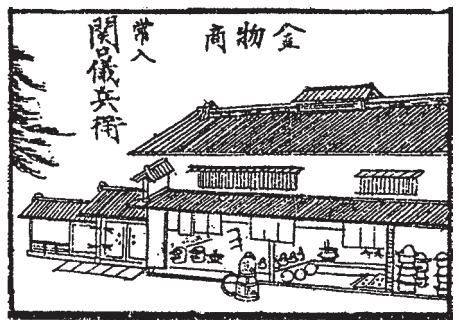 金物商
常入
関口儀兵衛